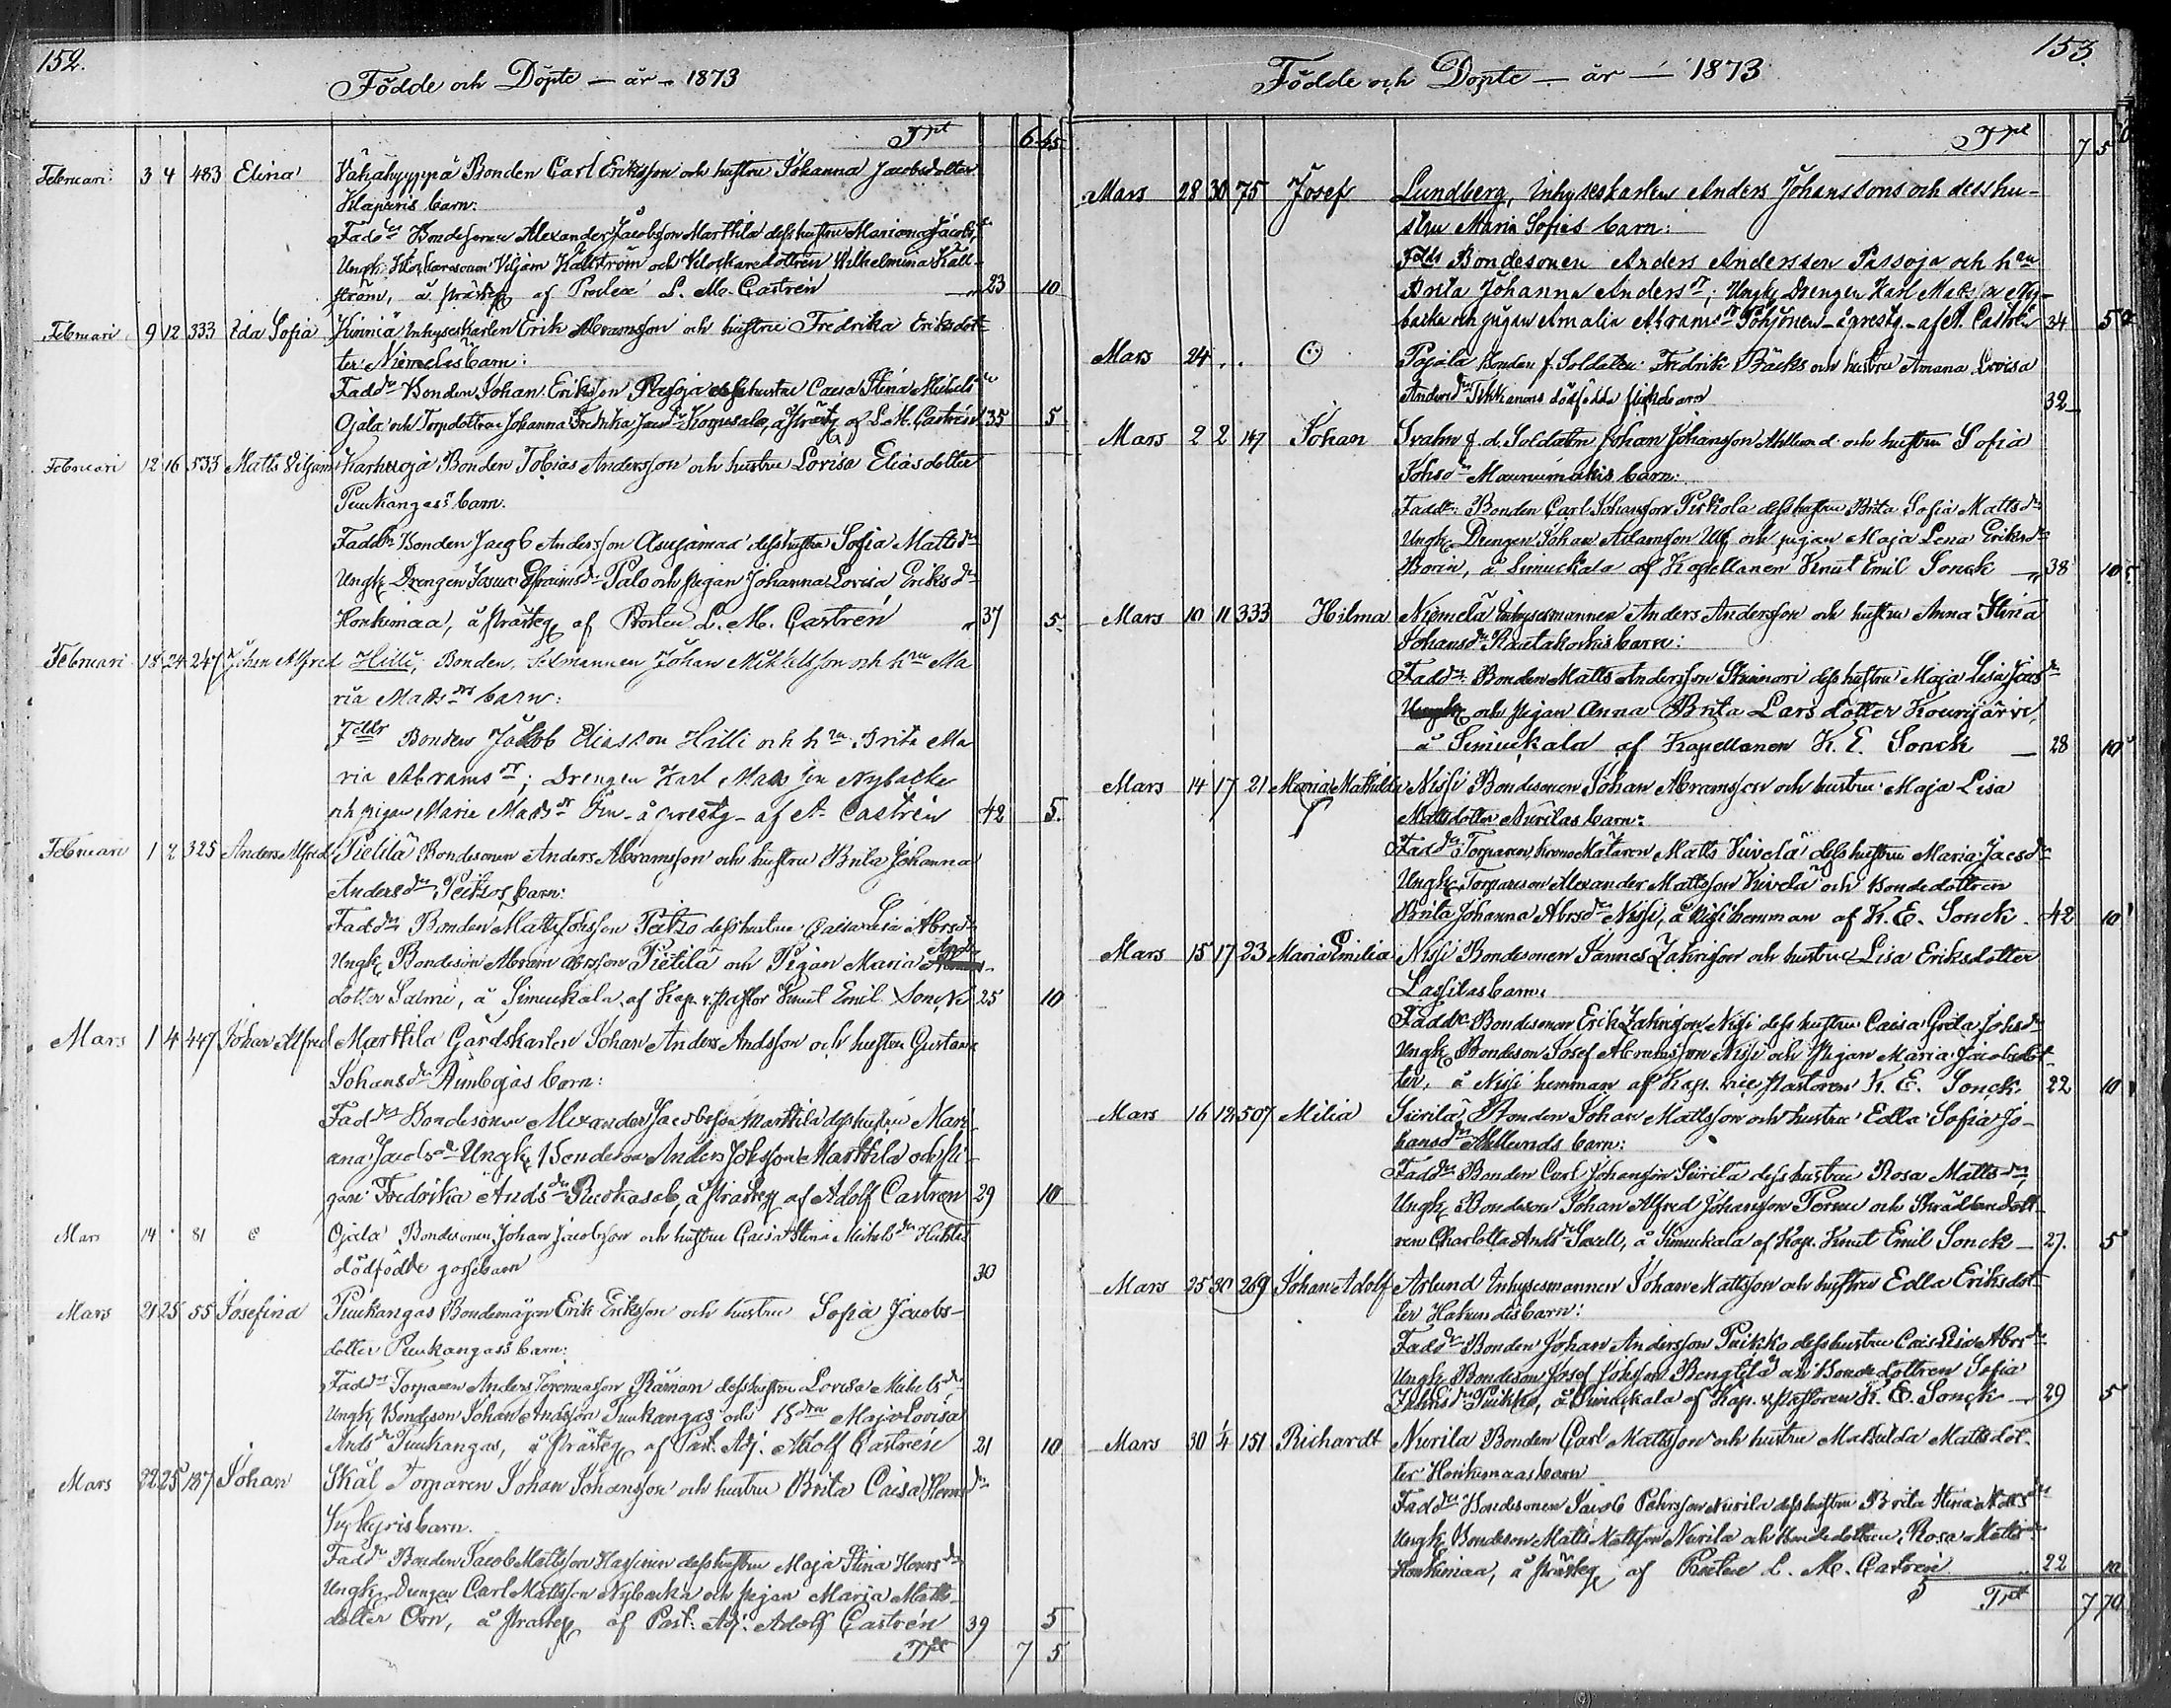 152.
Födde och Döpte — år — 1873
Tpt 6 45
Februari 3 4 483 Elina Vähähyyppä Bonden Carl Eriksson och hustru Johanna Jacobsdotter
Klaparis barn:
Fadd. Bondesonen Alexander Jacobsson Marttila dess hustru Mariana Jacobs
Ungk. Klockaresonen Viljam Källström och Klockaredottren Wilhelmina Käll-
ström, å prästeg. af L. M. Castrén 23 10
Februari 9 12 333 Ida Sofia Kinniä Inhyseskarlen Erik Abramsson och hustru Fredrika Eriksdot
ter Niemeläs barn:
Fadd. Bonden Johan Eriksson Passoja dess hustru Caisa Stina Michels
Ojala och Torpdottren Johanna Fredrika Jacsdr, å prästg. af L. M. Castrén 35 5
Februari 12 16 533 Matts Viljam Karhuoja Bonden Tobias Andersson och hustru Lovisa Eliasdotter
Puukangas's barn.
Fadd. Bonden Jacob Andersson dess hustru Sofia Mattsdr
Ungk. Drengen Josua Palo och pigan Johanna Lovisa Eriksdr
Honkimaa, å prästeg. af L. M. Castrén 37 5.
Februari 18 24 247 Johan Alfred Hilli, Bonden, Johan Mikkelsson och hru Ma
ria Madsdrs barn:
Fddr Bonden Jakob Eliasson Hilli och hru Brita Ma
ria Abramsdr; Drengen Karl Madsson Nybacka
och pigan Maria Madsdr Örn - å prestg. - af A. Castrén 42 5.
Februari 1 2 325 Anders Alfred Pietilä Bondesonen Anders Abramsson och hustru Brita Johanna
Andersdr Peitsos barn:
Fadd. Bonden Matts Johsson Peitso dess hustru Caisa Lisa Abrsdr
Ungk. Bondeson Abram Abrsson Pietilä och Pigan Maria Ands
dotter Salmi, å Simuckala af Kap. v. Pastor Knut Emil Sonck 25 10
Mars 1 4 447 Johan Alfred Marttila Gårdskarlen Johan Anders Andsson och hustru Gustava
Johansdr barn:
Fadd. Bondesonen Alexander Jacobsson Marttila dess hustru Mari
ana Jacobsdr Ungk. Bondeson Anders Johsson Marttila och pi-
gan Fredrika Andsdr, å prästeg. af Adolf Castrén 29 10
Mars 14 . 81 Ojala Bondesonen Johan Jacobsson och hustru Caisa Stina Michelsdr
dödfödde gossebarn 30
Mars 21 25 55 Josefina Puukangas Bondemågen Erik Eriksson och hustru Sofia Jacobs-
dotter Puukangas's barn:
Fadd. Torparen Anders Jeremiasson dess hustru Lovisa Michelsdr
Ungk. Bondeson Johan Andsson Puukangas och Maja Lovisa
Andsdr Puukangas, å prästeg. af Past. Adj. Adolf Castrén 21 10
Mars 22 25 187 Johan Skäl Torparen Johan Johansson och hustru Brita Caisa Hermsdr
barn.
Fadd. Bonden Jacob Mattsson dess hustru Maja Stina
Ungk. Drengen Carl Mattsson Nybacka och pigan Maria Matts-
dotter Örn, å prästeg. af Past. Adj. Adolf Castrén 39 5
Tpt 7 5
153.
Födde och Döpte — år — 1873
Tpt 7 5
Mars 28 30 75 Josef Lundberg, Inhyseskarlen Anders Johanssons och dess hu-
stru Maria Sofias barn:
Fddr Bondesonen Anders Andersson Passoja och hru
Brita Johanna Andersdr; Ungk. Drengen Karl Madsson Ny-
backa och pigan Amalia Abramsdr Pohjonen - å prestg. - af A. Castrén 34 5
Mars 24 . . Pojala Bonden f. Soldaten Fredrik Bäcks och hustru Anna Lovisa
Andersdr Tikkanens dödfödda flickbarn 32
Mars 2 2 147 Johan Svahn f. d. Soldaten Johan Johansson Ahllund och hustru Sofia
Johsdr barn:
Fadd. Bonden Carl Johansson Piskola dess hustru Brita Sofia Mattsdr
Ungk. Drengen Johan Adamsson Ulf och pigan Maja Lena Eriksdr
, å Simuckala af Kapellanen Knut Emil Sonck 38 10
Mars 10 11 333 Hilma Niemelä Inhysesmannen Anders Andersson och hustru Anna Stina
Johansdr Raatakorkis barn:
Fadd. Bonden Matts Andersson dess hustru Maja Lisa
och pigan Anna Brita Larsdotter Kourijärvi,
å Simuckala af Kapellanen K. E. Sonck 28 10
Mars 14 17 21 Maria Mathilda Nissi Bondesonen Johan Abramsson och hustru Maja Lisa
Mattsdotter Nurilas barn:
Fadd. Torparen, Matts Kivelä dess hustru Maria Jacsdr
Ungk. Torpareson Alexander Mattsson Kivelä och Bondedottren
Brita Johanna Abrsdr Nissi, å Nissi hemman af K. E. Sonck. 42 10
Mars 15 17 23 Maria Emilia Nissi Bondesonen Johannes Zakrisson och hustru Lisa Eriksdotter
Lassilas barn.
Fadd. Bondesonen Erik Zakrisson Nissi dess hustru Caisa Greta Johsdr
Ungk. Bondeson Josef Abramsson Nissi och pigan Maria Jacobsdot
ter, å Nissi hemman af Kap. vice pastoren K. E. Sonck. 22 10
Mars 16 19 507 Milia Siirilä Bonden Johan Mattsson och hustru Edla Sofia Jo-
hansdr Ahllunds barn:
Fadd. Bonden Carl Johansson Siirilä dess hustru Rosa Mattsdr,
Ungk. Bondeson Johan Alfred Johansson och Skräddaredott
ren Charlotta Andsdr, å Simuckala af Kap. Knut Emil Sonck 27. 5
Mars 25 30 269 Johan Adolf Aslund Inhysesmannen Johan Mattsson och hustru Edla Eriksdot
ter barn:
Fadd. Bonden Johan Andersson Puikko dess hustru Caisa Lisa Abrsdr
Ungk. Bondeson Josef Johsson Bengtilä och Bondedottren Sofia
Puikko, å Simuckala af Kap. v. Pastoren K. E. Sonck 29 5
Mars 30 1/4 151 Richardt Nurila Bonden Carl Mattsson och hustru Mathilda Mattsdot-
ter Honkimaas barn
Fadd. Bondesonen Jacob Pehrsson Nurila dess hustru Brita Stina Mattsdr
Ungk. Bondeson Matts Mattsson Nurila och Bondedottren Rosa Mattsdr
Honkimaa, å prästeg. af L. M. Castrén 22 10
Tpt 7 70